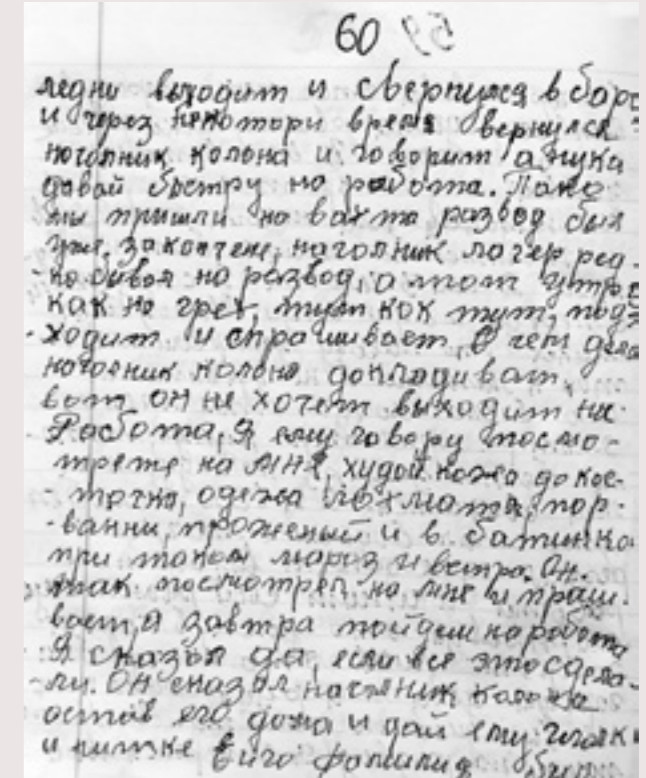 60 59
ледни выходит и свернулся в барак
и через некотори время вернулся
ночолник колона и говорит а нука
довай быстру но работа. Пака
мы пришли но вахта развод был
уже закончене, начолник лагер ред-
ко бывол но развод, а тот утро
как но грех, тут как тут, подъ
ходит и спрашивает, в чем дело
ночолник колона докладиват,
вот он не хочет выходит на
работа, я ему говору посмо-
трете на мня, худой кожа до кос-
точка, одежа лохмата, пор-
ванни, прожений и в батинка
при таком мороз и ветра. Он
так посмотрел но мне и праши-
вает, а завтра пойдеш на робота
Я сказол да, если все это сдела-
ли. Он сказал начолник колона
остав его дома и дай ему иголки
и нитке его фамилия